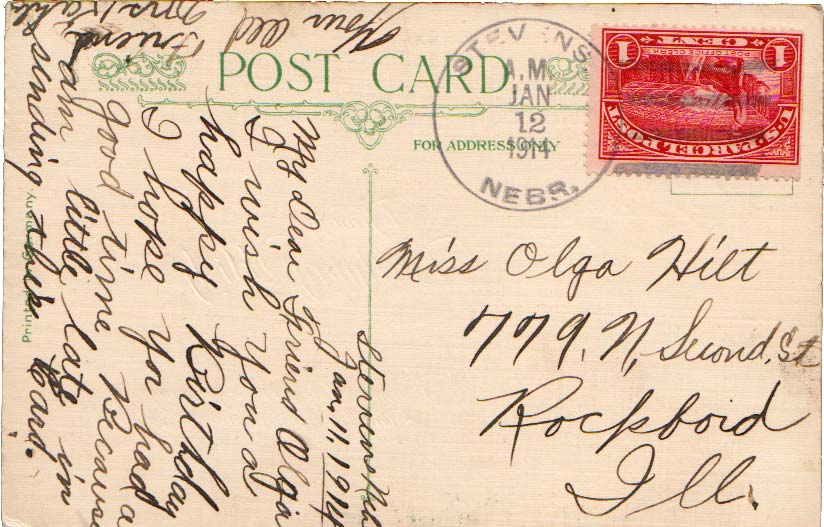 POST CARD
FOR ADDRESS ONLY
STEVENS
A.M.
JAN
12
1914
NEBR.
1 1
CENT
POST OFFICE CLERK
U.S. PARCEL POST
Miss Olga Hilt
779, N, Second, St
Rockford
Ill.
Stevens Neb
Jan. 11, 1914
My Dear Friend Olga
I wish you a
happy Birthday
I hope you had a
good time. Because
I am little late in
sending this Card.
Your Old
Friend
Mrs.
Printed Germany